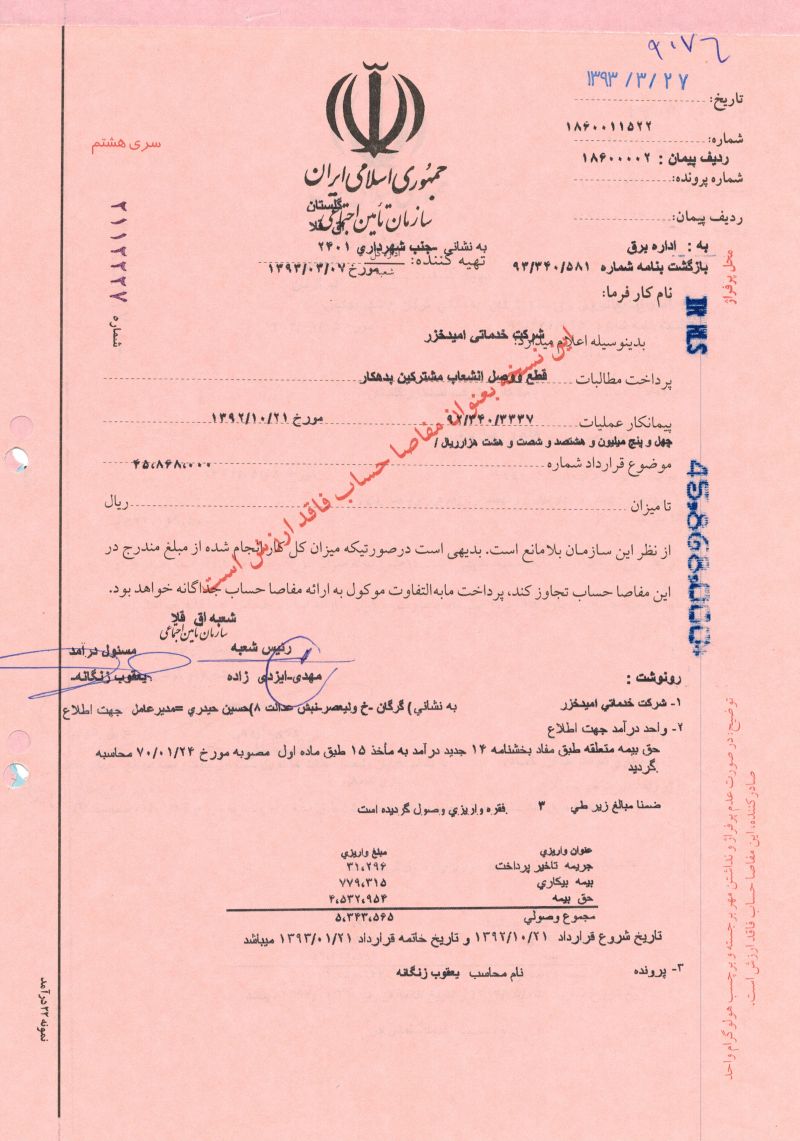 ۹۰۷۶
۱۳۹۳/۳/۲۷
تاریخ:
۱۸۶۰۰۱۱۵۲۲
شماره:
ردیف پیمان : ۱۸۶۰۰۰۰۲
شماره پرونده:
ردیف پیمان:
سری هشتم
جمهوری اسلامی ایران
سازمان تأمین اجتماعی
گلستان
آق قلا
شماره ۲۱۱۳۲۲۷
به : اداره برق
به نشانی -جنب شهرداري ۲۴۰۱
تهیه کننده:
بازگشت بنامه شماره ۹۳/۳۴۰/۵۸۱
مورخ ۱۳۹۳/۰۳/۰۷
نام کار فرما:
محل پرفراژ
شرکت خدماتي امیدخزر
بدینوسیله اعلام میدارد:
قطع ووصل انشعاب مشترکین بدهکار
پرداخت مطالبات
۹۲/۳۴۰/۳۳۳۷ مورخ ۱۳۹۲/۱۰/۲۱
پیمانکار عملیات
چهل و پنج میلیون و هشتصد و شصت و هشت هزارریال /
موضوع قرارداد شماره ۴۵،۸۶۸،۰۰۰
تا میزان ریال
از نظر این سازمان بلامانع است. بدیهی است درصورتیکه میزان کل کار انجام شده از مبلغ مندرج در
این مفاصا حساب تجاوز کند، پرداخت مابه‌التفاوت موکول به ارائه مفاصا حساب جداگانه خواهد بود.
این نسخه بعنوان مفاصا حساب فاقد ارزش است
IR RLS
45,868,000
شعبه اق قلا
سازمان تأمین اجتماعی
رئیس شعبه
مسئول درآمد
مهدی-ایزدی زاده
یعقوب زنگانه-
رونوشت :
۱- شرکت خدماتي امیدخزر به نشاني) گرگان -خ ولیعصر-نبش عدالت ۸)حسین حیدري =مدیرعامل جهت اطلاع
۲- واحد درآمد جهت اطلاع
حق بیمه متعلقه طبق مفاد بخشنامه ۱۴ جدید درآمد به مأخذ ۱۵ طبق ماده اول مصوبه مورخ ۷۰/۰۱/۲۴ محاسبه
گردید
ضمنا مبالغ زیر طي ۳ فقره واریزي وصول گردیده است
عنوان واریزي مبلغ واریزي
جریمه تاخیر پرداخت ۳۱،۲۹۶
بیمه بیکاري ۷۷۹،۳۱۵
حق بیمه ۴،۵۳۲،۹۵۴
مجموع وصولي ۵،۳۴۳،۵۶۵
تاریخ شروع قرارداد ۱۳۹۲/۱۰/۲۱ و تاریخ خاتمه قرارداد ۱۳۹۳/۰۱/۲۱ میباشد
۳- پرونده نام محاسب یعقوب زنگانه
توضیح: در صورت عدم پرفراژ و نداشتن مهر برجسته و برچسب هولوگرام واحد
صادرکننده، این مفاصا حساب فاقد ارزش است.
نمونه ۲۲ درآمد